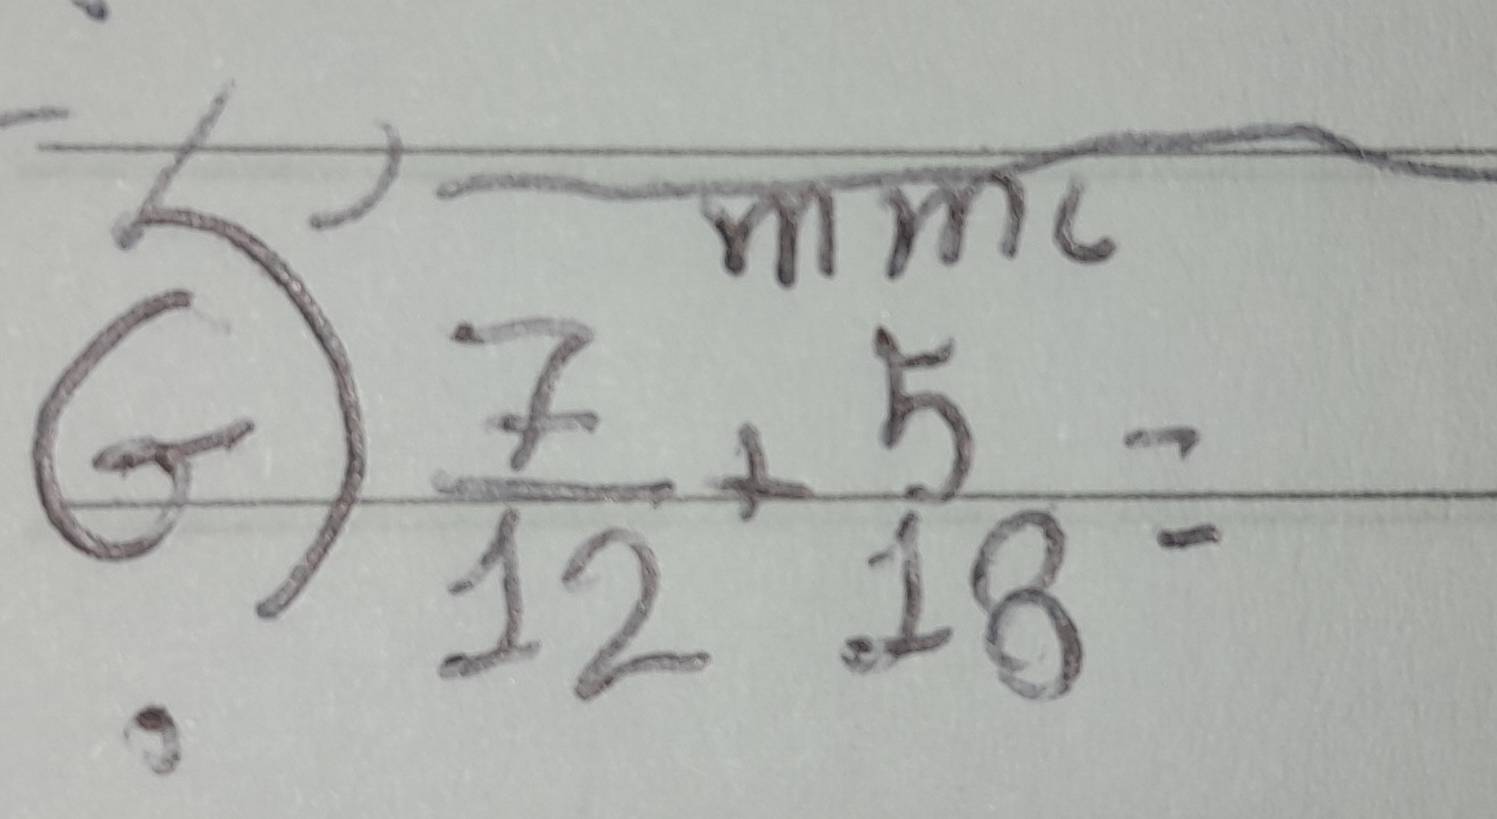 mmc
G) 7/12 + 5/18 =